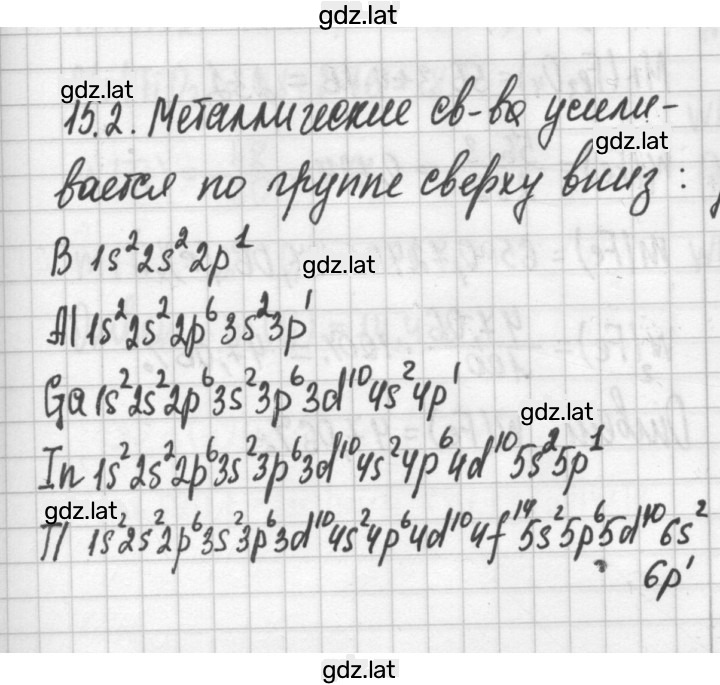 gdz.lat
gdz.lat
15.2. Металлические св-ва усили-
gdz.lat
вается по группе сверху вниз :
B 1s² 2s² 2p¹
gdz.lat
Al 1s² 2s² 2p⁶ 3s² 3p¹
Ga 1s² 2s² 2p⁶ 3s² 3p⁶ 3d¹⁰ 4s² 4p¹
gdz.lat
In 1s² 2s² 2p⁶ 3s² 3p⁶ 3d¹⁰ 4s² 4p⁶ 4d¹⁰ 5s² 5p¹
gdz.lat
Tl 1s² 2s² 2p⁶ 3s² 3p⁶ 3d¹⁰ 4s² 4p⁶ 4d¹⁰ 4f¹⁴ 5s² 5p⁶ 5d¹⁰ 6s²
6p¹
gdz.lat